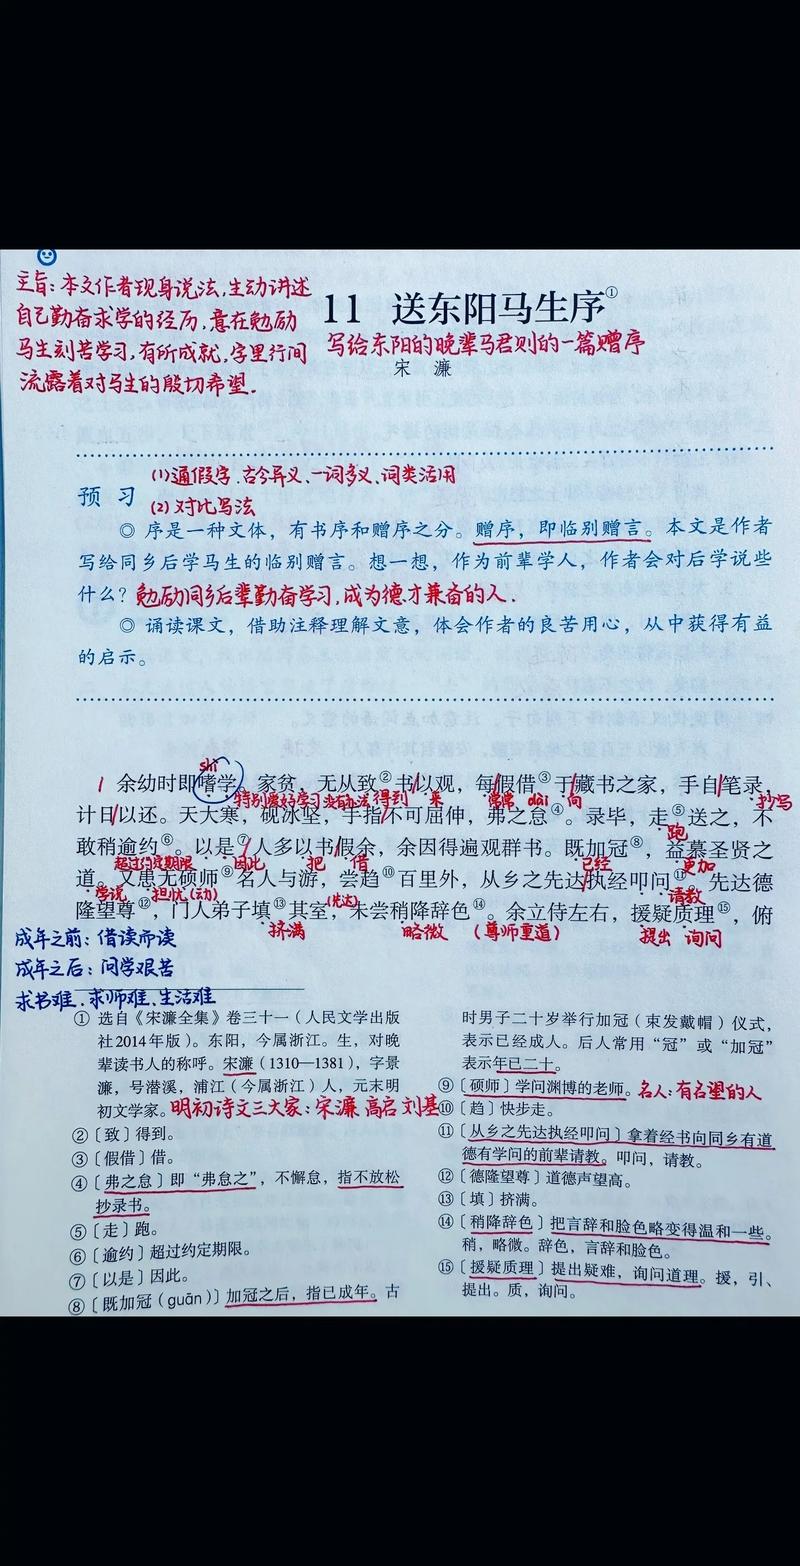 主旨:本文作者现身说法,生动讲述
自己勤奋求学的经历,意在勉励
马生刻苦学习,有所成就,字里行间
流露着对马生的殷切希望.
11 送东阳马生序①
写给东阳的晚辈马君则的一篇赠序
宋 濂
预 习
(1)通假字、古今异义、一词多义、词类活用
(2)对比写法
◎ 序是一种文体,有书序和赠序之分。赠序,即临别赠言。本文是作者
写给同乡后学马生的临别赠言。想一想,作为前辈学人,作者会对后学说些
什么?勉励同乡后辈勤奋学习,成为德才兼备的人.
◎ 诵读课文,借助注释理解文意,体会作者的良苦用心,从中获得有益
的启示。
shì
1 余幼时即嗜学。家贫,无从致②书以观,每假借③于藏书之家,手自笔录,
特别爱好学习 没有办法 得到 来 常常 向 抄写
计日以还。天大寒,砚冰坚,手指不可屈伸,弗之怠④。录毕,走⑤送之,不
跑
敢稍逾约⑥。以是⑦人多以书假余,余因得遍观群书。既加冠⑧,益慕圣贤之
超过约定期限 因此 把 借 已经 更加
道。又患无硕师⑨名人与游,尝趋⑩百里外,从乡之先达执经叩问⑪。先达德
学说 担忧(动) (先达) 请教
隆望尊⑫,门人弟子填⑬其室,未尝稍降辞色⑭。余立侍左右,援疑质理⑮,俯
挤满 略微 (尊师重道) 提出 询问
成年之前:借读而读
成年之后:问学艰苦
求书难、求师难、生活难
① 选自《宋濂全集》卷三十一(人民文学出版
社2014年版)。东阳,今属浙江。生,对晚
辈读书人的称呼。宋濂(1310—1381),字景
濂,号潜溪,浦江(今属浙江)人,元末明
初文学家。明初诗文三大家:宋濂 高启 刘基
②〔致〕得到。
③〔假借〕借。
④〔弗之怠〕即“弗怠之”,不懈怠,指不放松
抄录书。
⑤〔走〕跑。
⑥〔逾约〕超过约定期限。
⑦〔以是〕因此。
⑧〔既加冠(guān)〕加冠之后,指已成年。古
时男子二十岁举行加冠(束发戴帽)仪式,
表示已经成人。后人常用“冠”或“加冠”
表示年已二十。
⑨〔硕师〕学问渊博的老师。名人:有名望的人
⑩〔趋〕快步走。
⑪〔从乡之先达执经叩问〕拿着经书向同乡有道
德有学问的前辈请教。叩问,请教。
⑫〔德隆望尊〕道德声望高。
⑬〔填〕挤满。
⑭〔稍降辞色〕把言辞和脸色略变得温和一些。
稍,略微。辞色,言辞和脸色。
⑮〔援疑质理〕提出疑难,询问道理。援,引、
提出。质,询问。